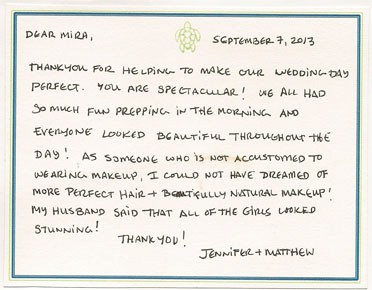 DEAR MIRA, SEPTEMBER 7, 2013
THANKYOU FOR HELPING TO MAKE OUR WEDDING DAY
PERFECT. YOU ARE SPECTACULAR! WE ALL HAD
SO MUCH FUN PREPPING IN THE MORNING AND
EVERYONE LOOKED BEAUTIFUL THROUGHOUT THE
DAY! AS SOMEONE WHO IS NOT ACCUSTOMED TO
WEARING MAKEUP, I COULD NOT HAVE DREAMED OF
MORE PERFECT HAIR + BEAUTIFULLY NATURAL MAKEUP!
MY HUSBAND SAID THAT ALL OF THE GIRLS LOOKED
STUNNING!
THANK YOU!
JENNIFER + MATTHEW